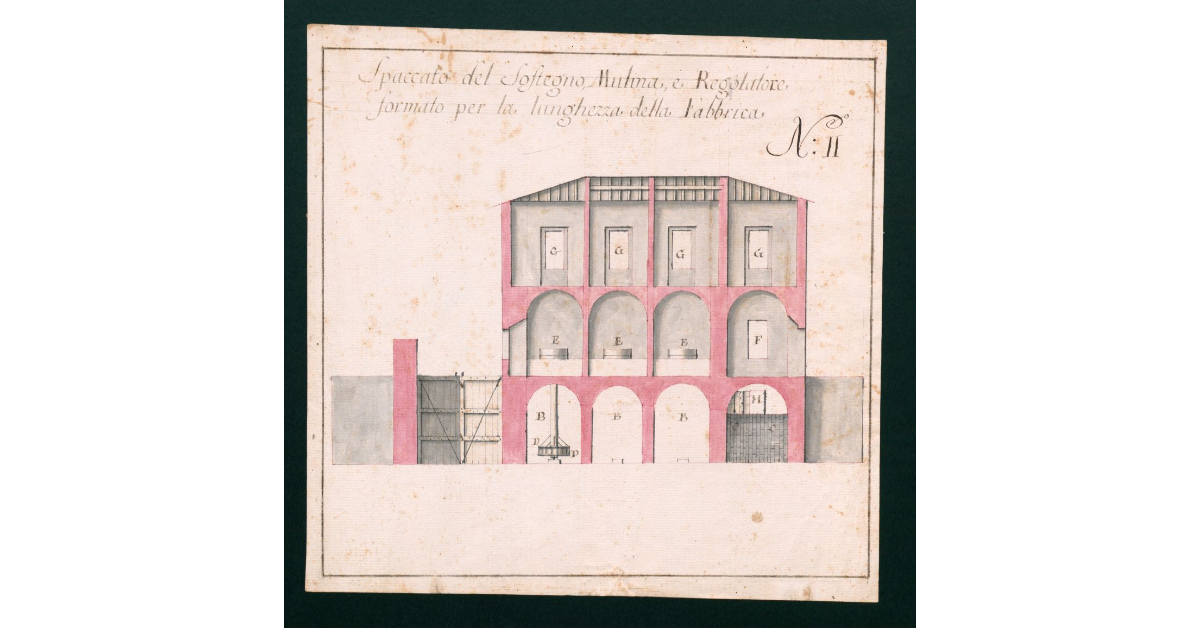 Spaccato del Sostegno, Mulina, e Regolatore
formato per la lunghezza della Fabbrica
N.º: II
G G G G
E E E F
B B B H
D D